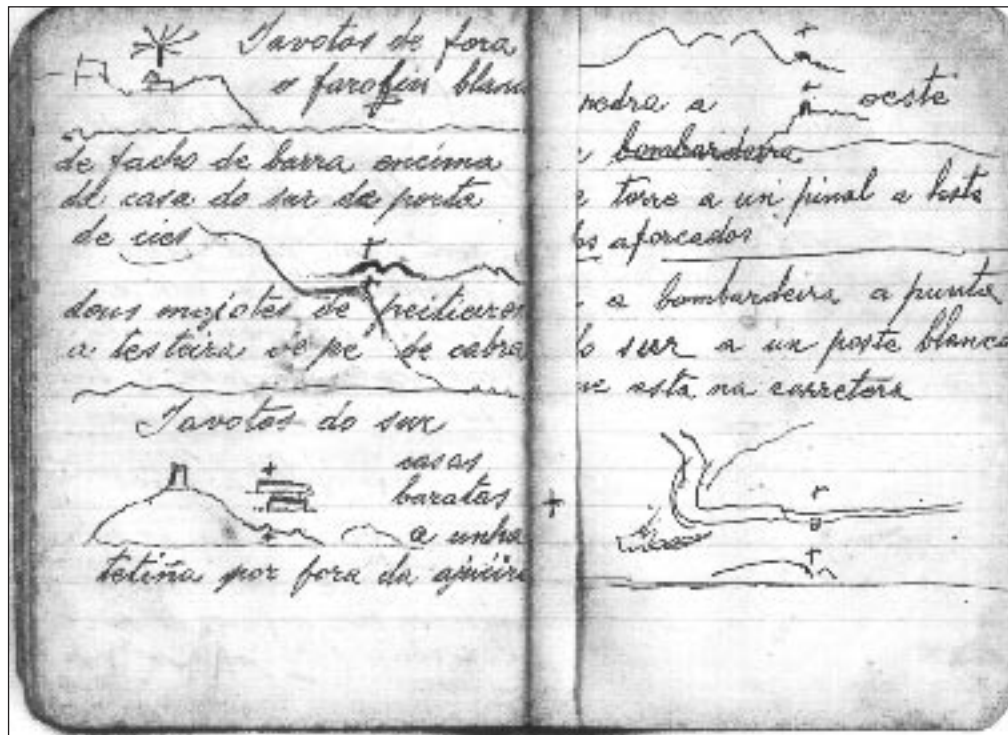 Tavotos de fora
o farofin blanc
de facho de barra encima
da casa do sur da porta
de cies
dous mojotes de
a testeira de pe de cabra
Tavotos do sur
casas
baratas
a unha
tetiña por fora da
pedra a oeste
a bombardeira
torre a un pinal a
os aforcados
a bombardeira a punta
do sur a un poste blanco
que esta na carretera